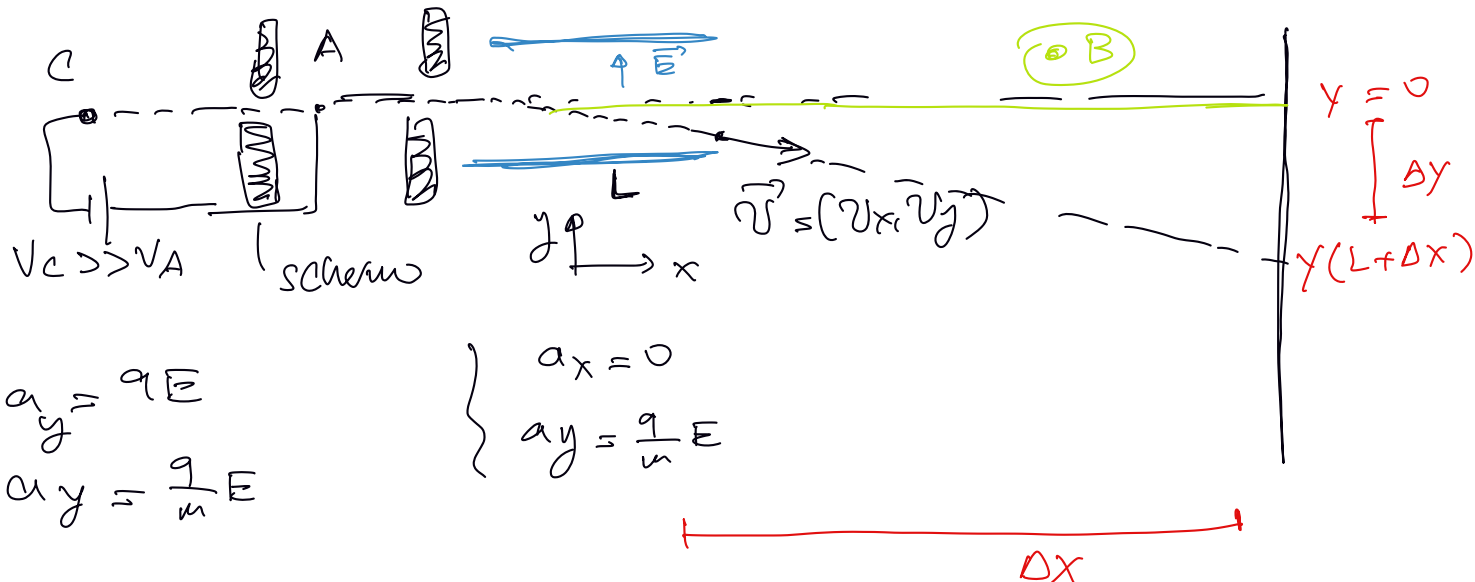 C
A
E⃗
B
y = 0
Δy
L
V⃗ = (Vx, Vy)
y(L+Δx)
VC >> VA
schermo
y
x
ay = qE
ay = q/m E
ax = 0
ay = q/m E
Δx